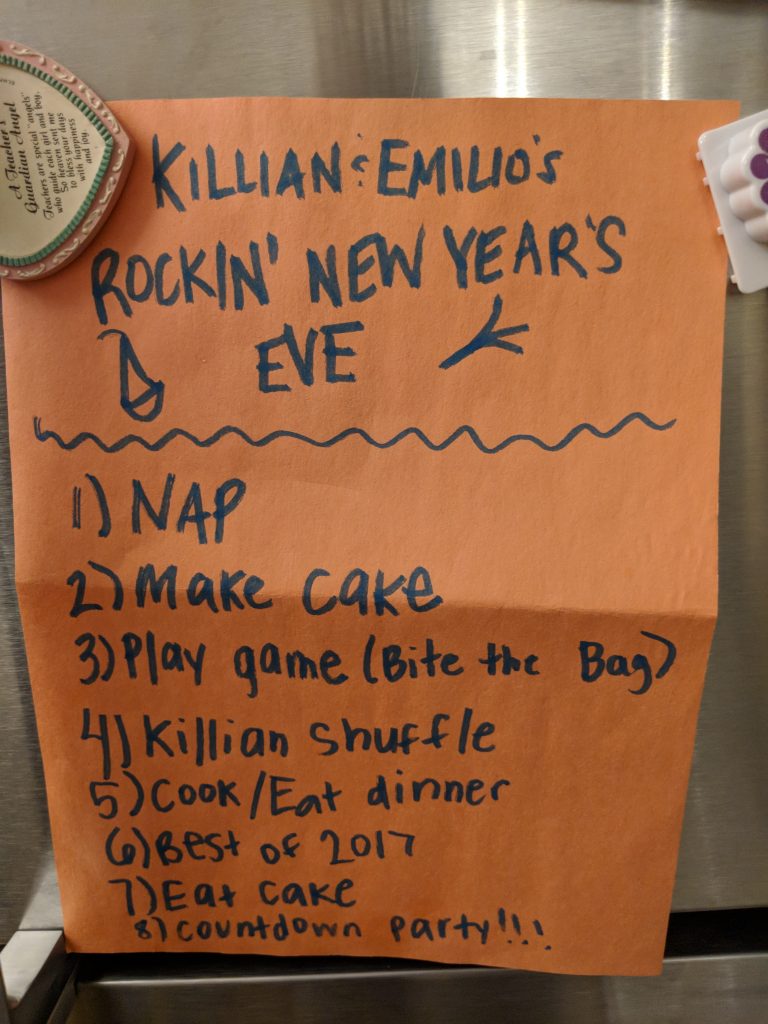 A Teacher's
Guardian Angel
Teachers are special "angels"
who guide each girl and boy.
So heaven sent me
to bless your days
with happiness
and joy.
KILLIAN & EMILIO'S
ROCKIN' NEW YEAR'S
EVE
1) NAP
2) Make cake
3) Play game (Bite the Bag)
4) Killian Shuffle
5) Cook/Eat dinner
6) Best of 2017
7) Eat cake
8) countdown party!!!